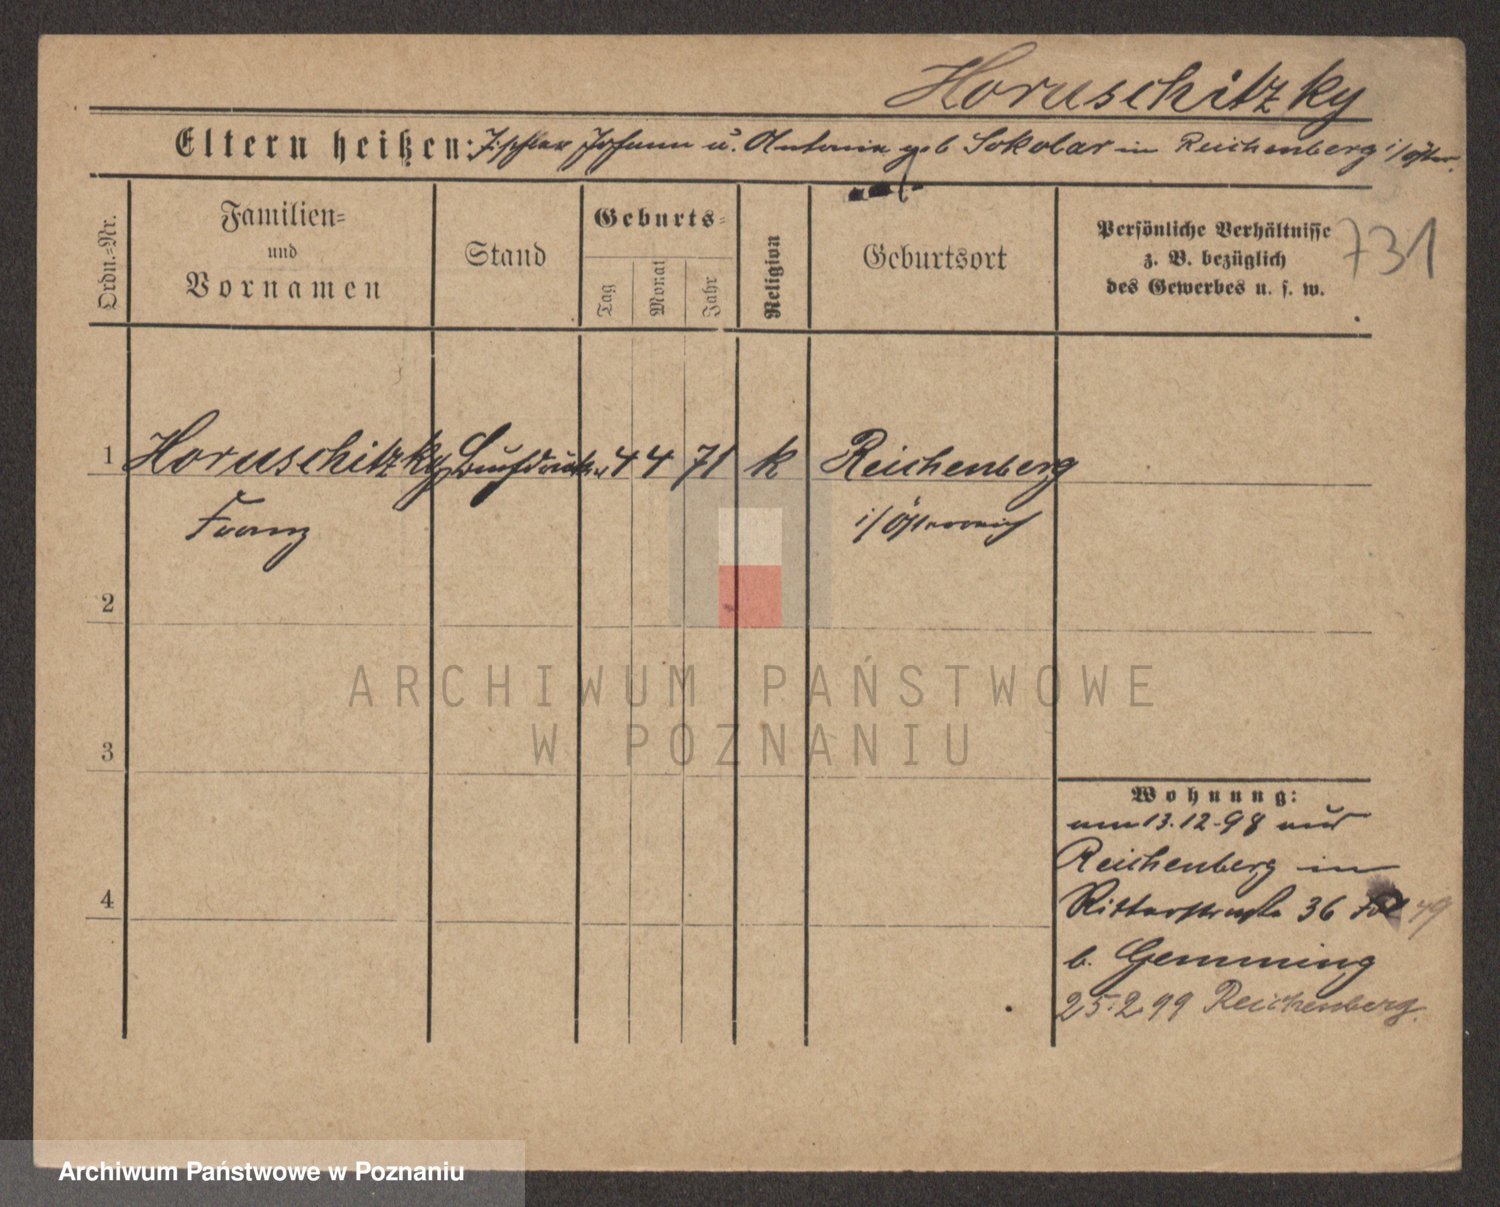 Horuschitzky
Eltern heißen: Tischler Johann u. Antonie geb Sokolar in Reichenberg i/Öster.
Ordn.=Nr.
Familien=
und
Vornamen
Stand
Geburts=
Tag
Monat
Jahr
Religion
Geburtsort
Persönliche Verhältnisse
z. B. bezüglich
des Gewerbes u. s. w.
731
1 Horuschitzky Buchdrucker 4 4 71 k Reichenberg
Franz i/Österreich
2
3
4
Wohnung:
am 13.12.98 aus
Reichenberg in
Ritterstraße 36
b. Gemming
25.2.99 Reichenberg.
ARCHIWUM PAŃSTWOWE
W POZNANIU
Archiwum Państwowe w Poznaniu